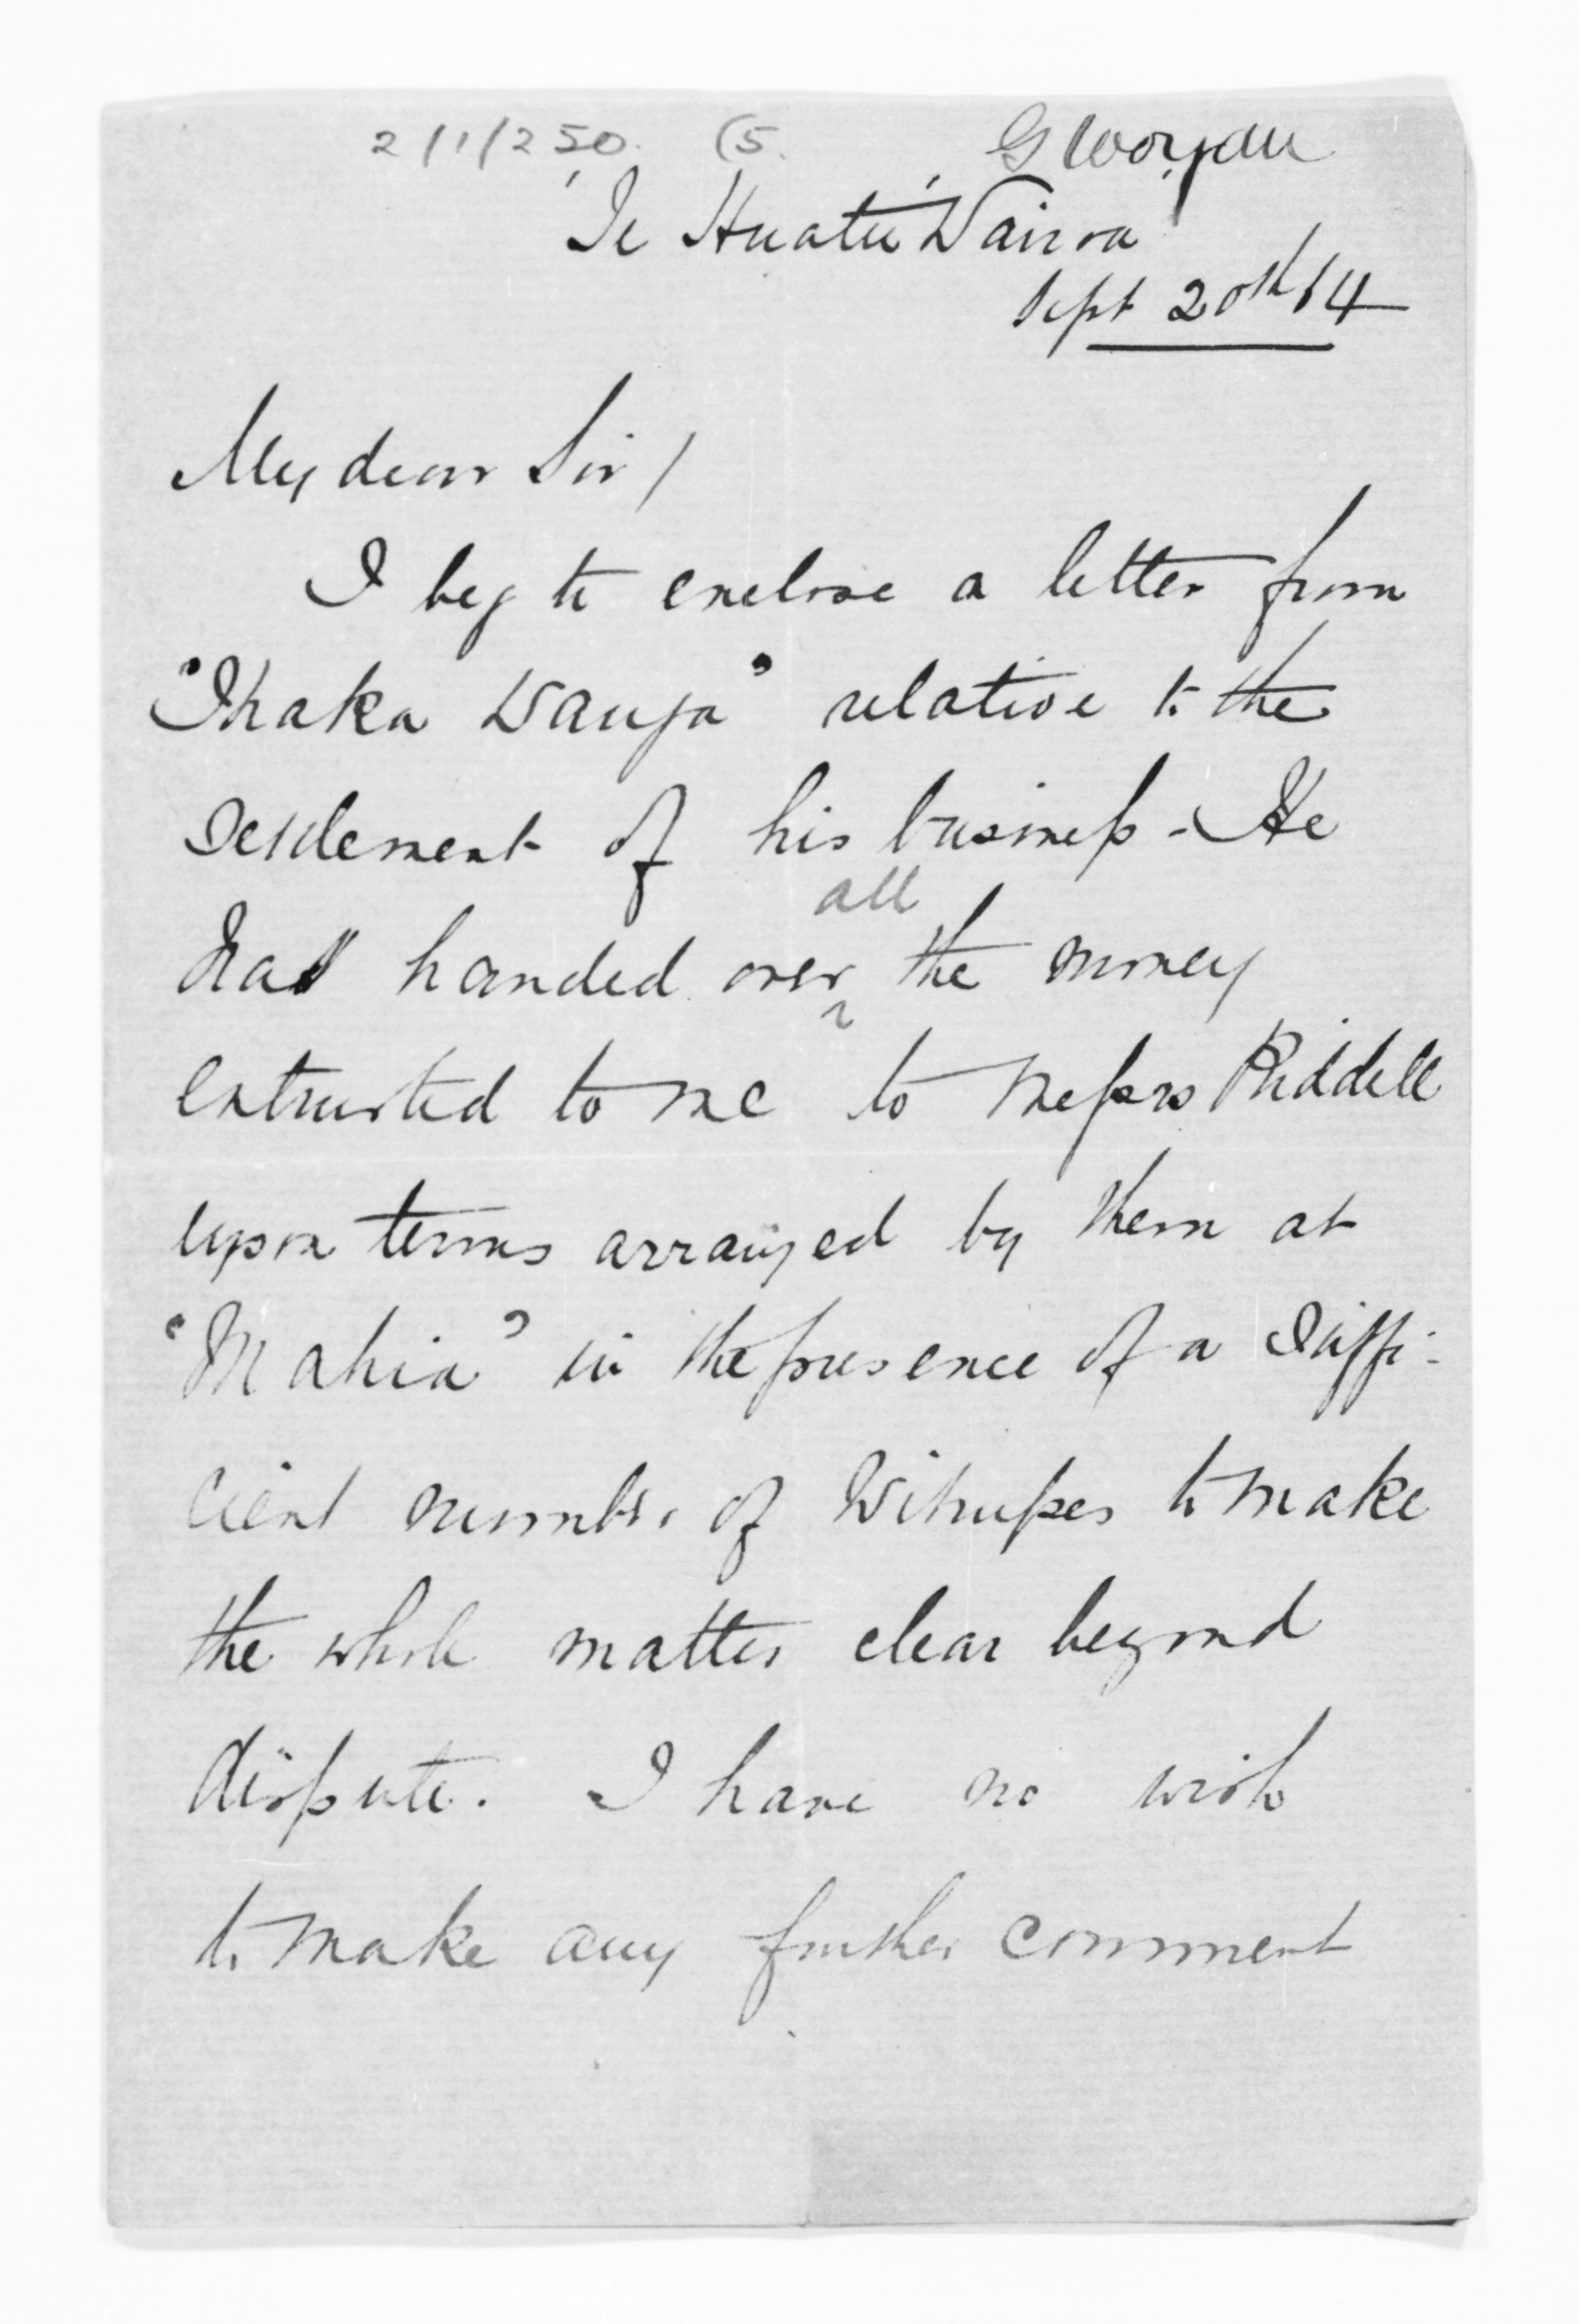 2/1/250. (5. G Worgan
"Te Huatu" Wairoa
Sept 20th /64
My dear Sir/
I beg to enclose a letter from
"Ihaka Wanga" relative to the
settlement of his business - He
has handed over all the money
entrusted to me to Messrs Riddell
upon terms arranged by them at
"Mahia" in the presence of a suffi-
cient number of Witnesses to make
the whole matter clear beyond
dispute. I have no wish
to make any further comment